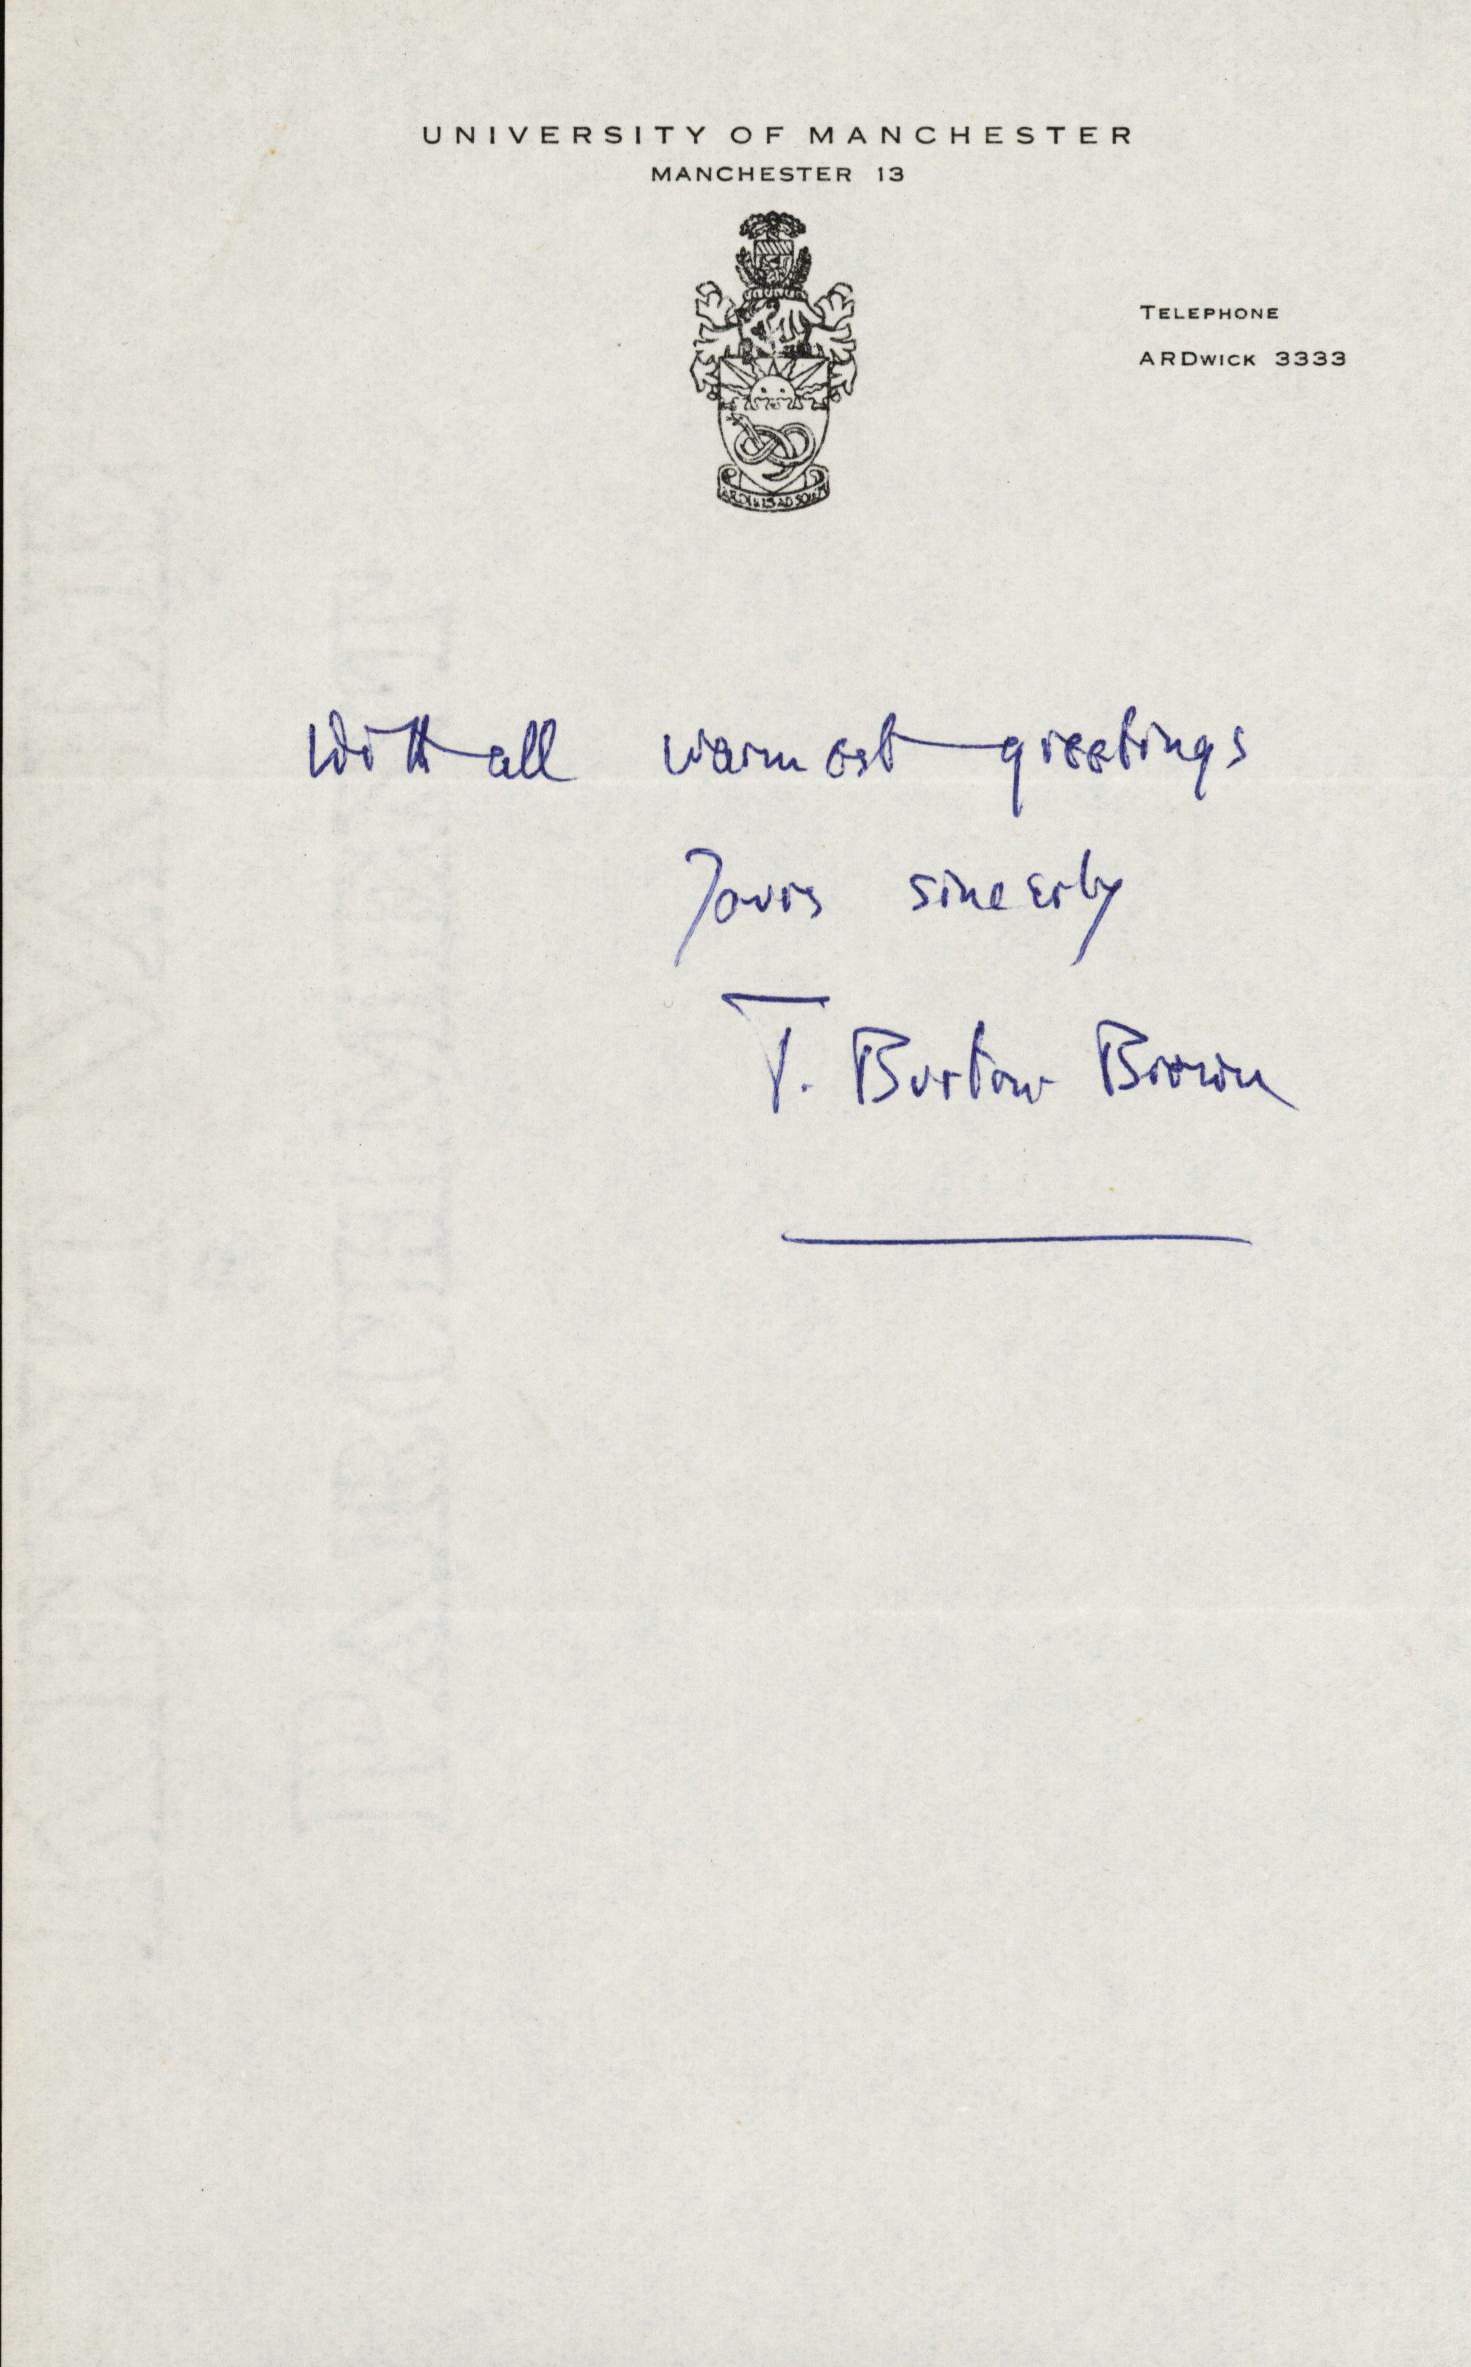 UNIVERSITY OF MANCHESTER
MANCHESTER 13
TELEPHONE
ARDWICK 3333
With all warmest greetings
Yours sincerly
T. Burton Brown